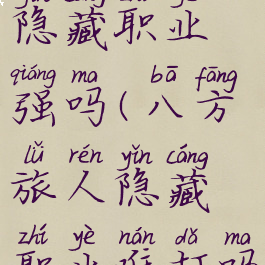 隐藏职业
qiáng ma bā fāng
强吗(八方
lǚ rén yǐn cáng
旅人隐藏
zhí yè nán dǎ ma